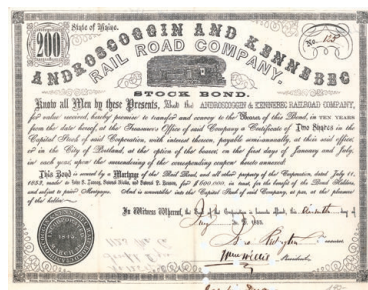 200
State of Maine.
No. 155
ANDROSCOGGIN AND KENNEBEC
RAIL ROAD COMPANY,
STOCK BOND.
Know all Men by these Presents, That the ANDROSCOGGIN & KENNEBEC RAILROAD COMPANY,
for value received, hereby promise to transfer and convey to the Bearer of this Bond, in TEN YEARS
from the date hereof, at the Treasurer's Office of said Company a Certificate of Two Shares in the
Capital Stock of said Corporation, with interest thereon, payable semi-annually, at their said office,
or in the City of Portland, at the option of the bearer, on the first days of January and July,
in each year, upon the surrendering of the corresponding coupon hereto annexed.
This Bond is secured by a Mortgage of the Rail Road, and all other property of the Corporation, dated July
1853, made to
for $600,000 in trust, for the benefit of the Bond Holders,
and subject to prior Mortgages. And is convertible into the Capital Stock of said Company, at par, at the pleasure
of the holder.
In Witness Whereof, the Seal of the Corporation is hereunto affixed, this day of
Treasurer.
President.